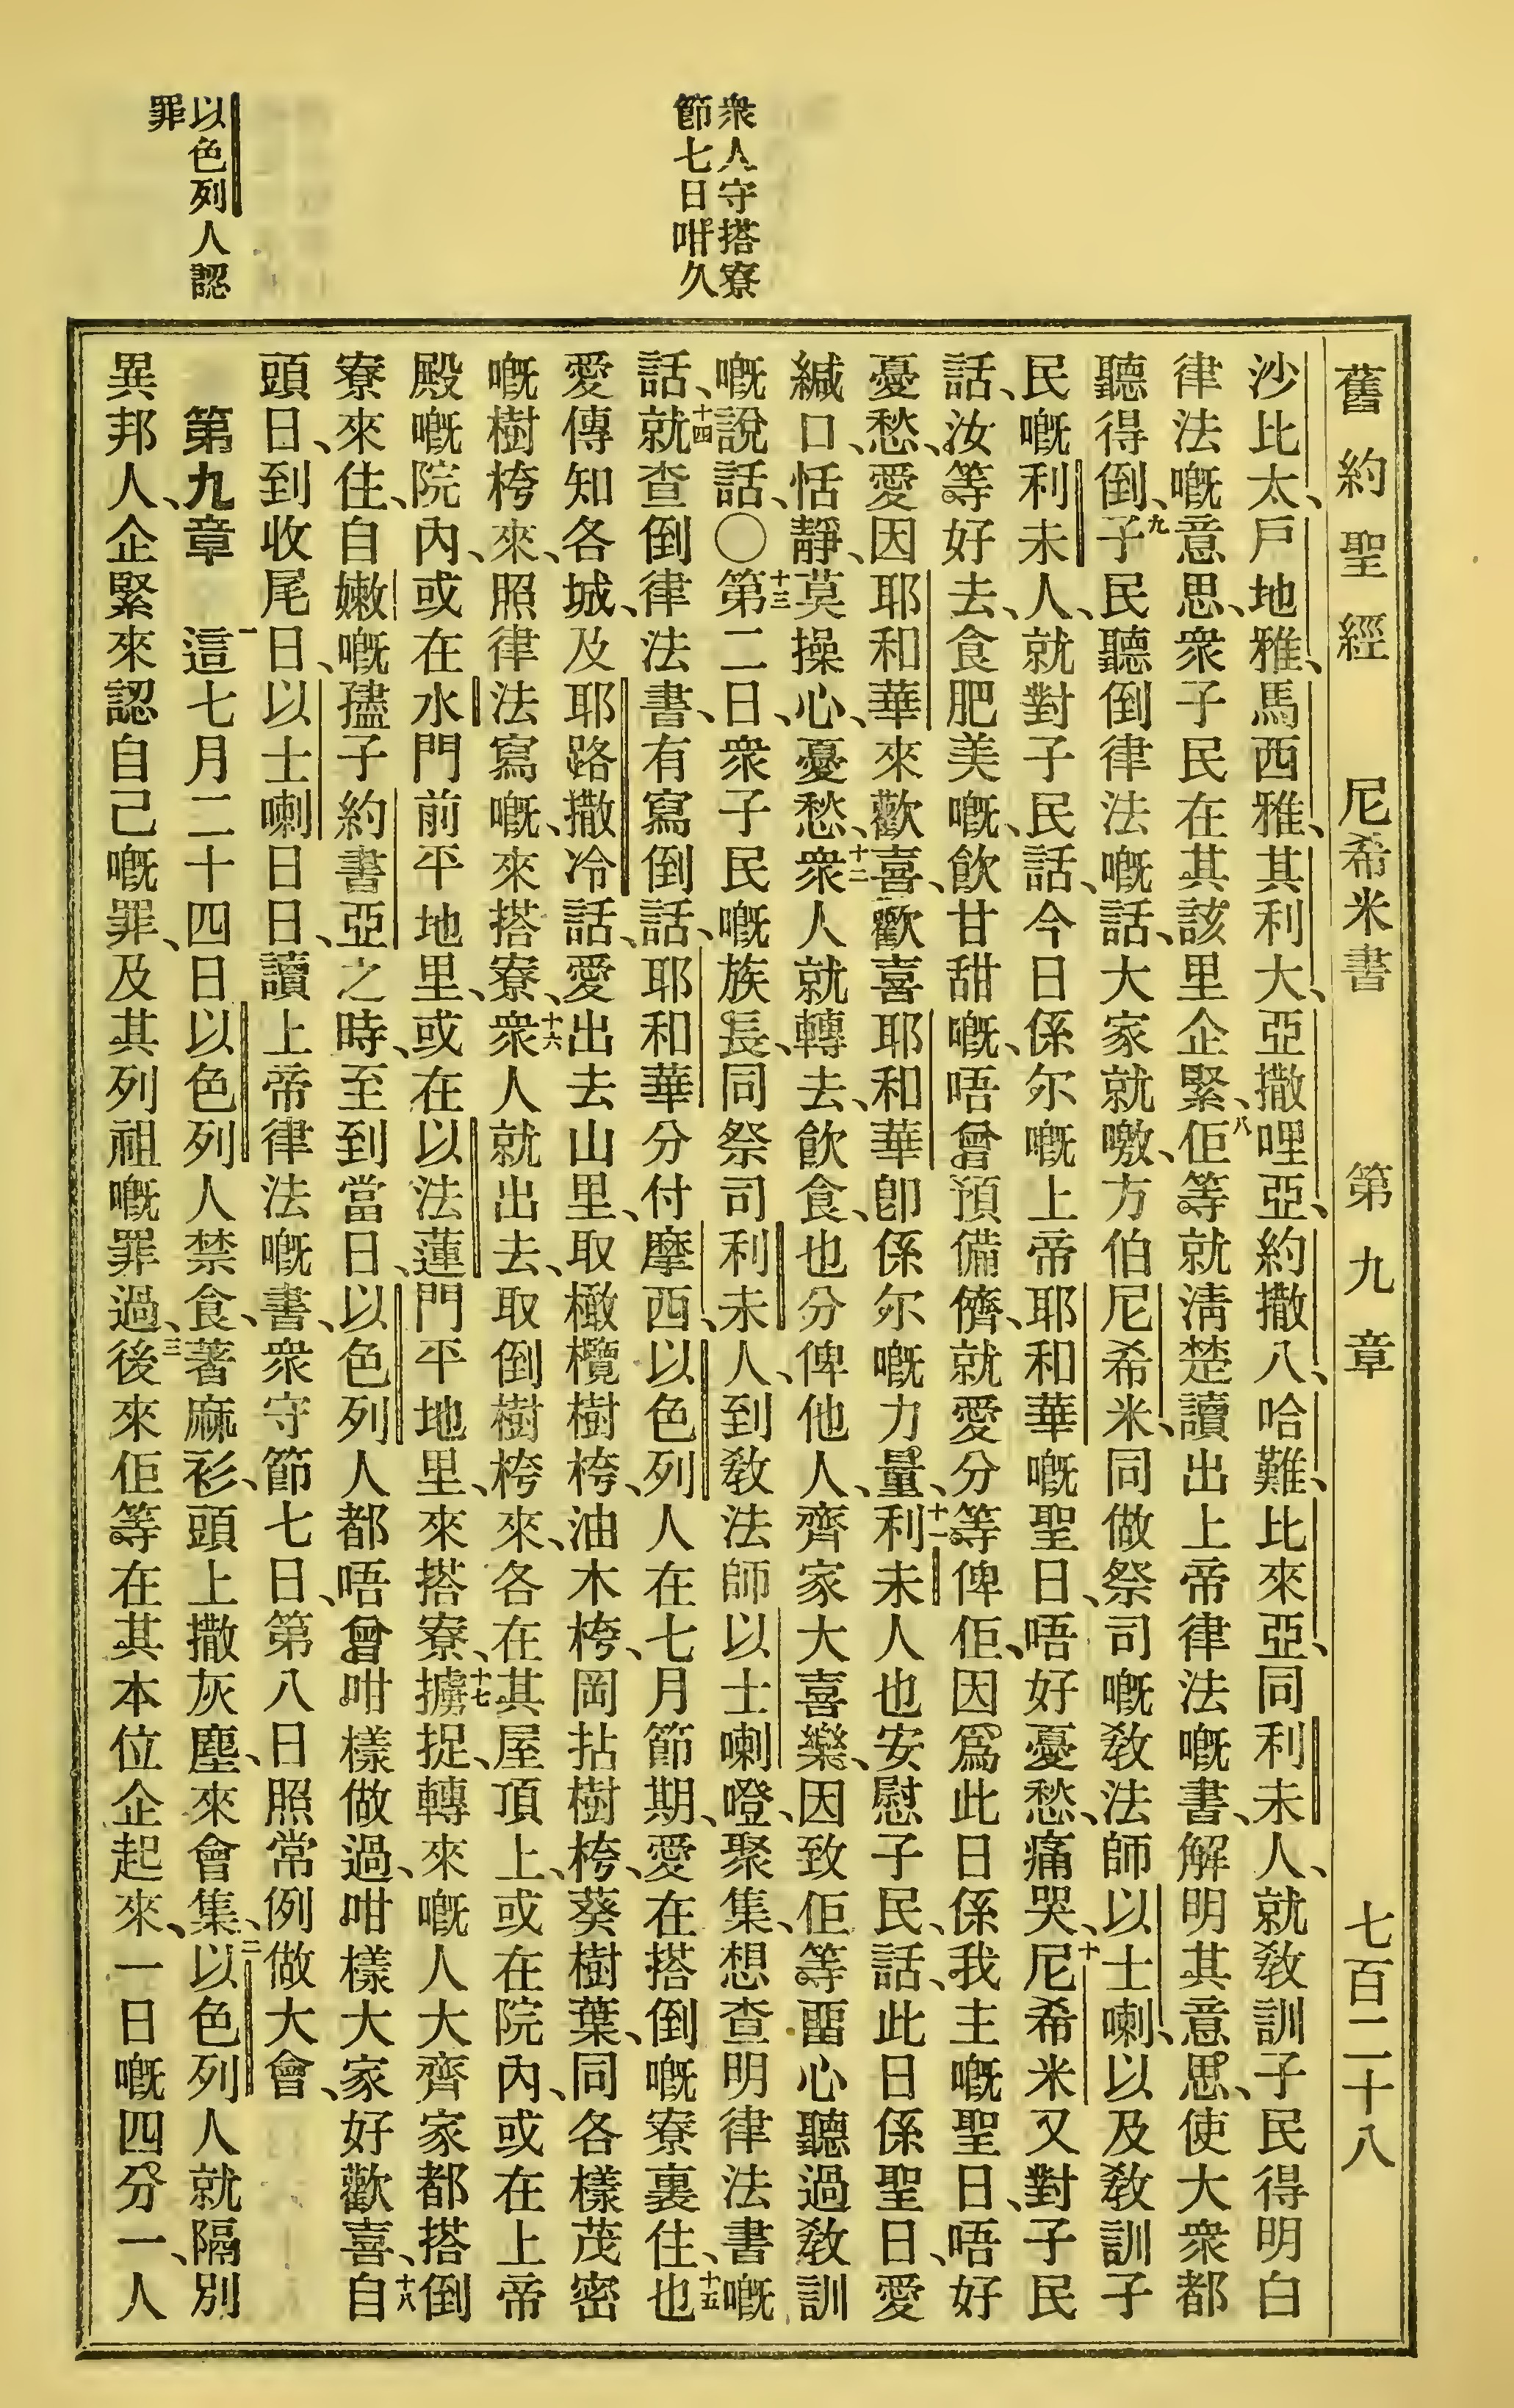 舊約聖經　尼希米書　第九章　七百二十八
沙比太、戶地雅、馬西雅、其利大、亞撒哩亞、約撒八、哈難、比來亞、同利未人、就敎訓子民得明白
律法嘅意思、衆子民在其該里企緊、八佢等就淸楚讀出上帝律法嘅書、解明其意思、使大衆都
聽得倒、九子民聽倒律法嘅話、大家就噭、方伯尼希米、同做祭司嘅敎法師以士喇、以及敎訓子
民嘅利未人、就對子民話、今日係尔嘅上帝耶和華嘅聖日、唔好憂愁、痛哭、十尼希米又對子民
話、汝等好去、食肥美嘅、飮甘甜嘅、唔曾預備儕、就愛分等俾佢、因爲此日係我主嘅聖日、唔好
憂愁、愛因耶和華來歡喜、歡喜耶和華、卽係尔嘅力量、十一利未人也安慰子民、話、此日係聖日、愛
緘口、恬靜、莫操心、憂愁、十二衆人就轉去、飮食、也分俾他人、齊家大喜樂、因致佢等畱心聽過敎訓
嘅說話、〇十三第二日、衆子民嘅族長、同祭司利未人、到敎法師以士喇嶝、聚集、想查明律法書嘅
話、十四就查倒律法書、有寫倒話、耶和華分付摩西、以色列人在七月節期、愛在搭倒嘅寮裏住、十五也
愛傳知各城、及耶路撒冷話、愛出去山里、取橄欖樹桍、油木桍、岡拈樹桍、葵樹葉、同各樣茂密
嘅樹桍來、照律法寫嘅、來搭寮、十六衆人就出去、取倒樹桍來、各在其屋頂上、或在院內、或在上帝
殿嘅院內、或在水門前平地里、或在以法蓮門平地里、來搭寮、十七擄捉、轉來嘅人大齊家都搭倒
寮來住、自嫩嘅孻子約書亞之時、至到當日、以色列人都唔曾咁樣做過、咁樣大家好歡喜、十八自
頭日、到收尾日、以士喇日日、讀上帝律法嘅書、衆守節七日、第八日照常例做大會、
第九章　一這七月二十四日以色列人禁食、著麻衫、頭上撒灰塵、來會集、二以色列人就隔別
異邦人、企緊來認自己嘅罪、及其列祖嘅罪過、三後來佢等在其本位企起來、一日嘅四分一、人
衆人守搭寮
節七日咁久
以色列人認
罪